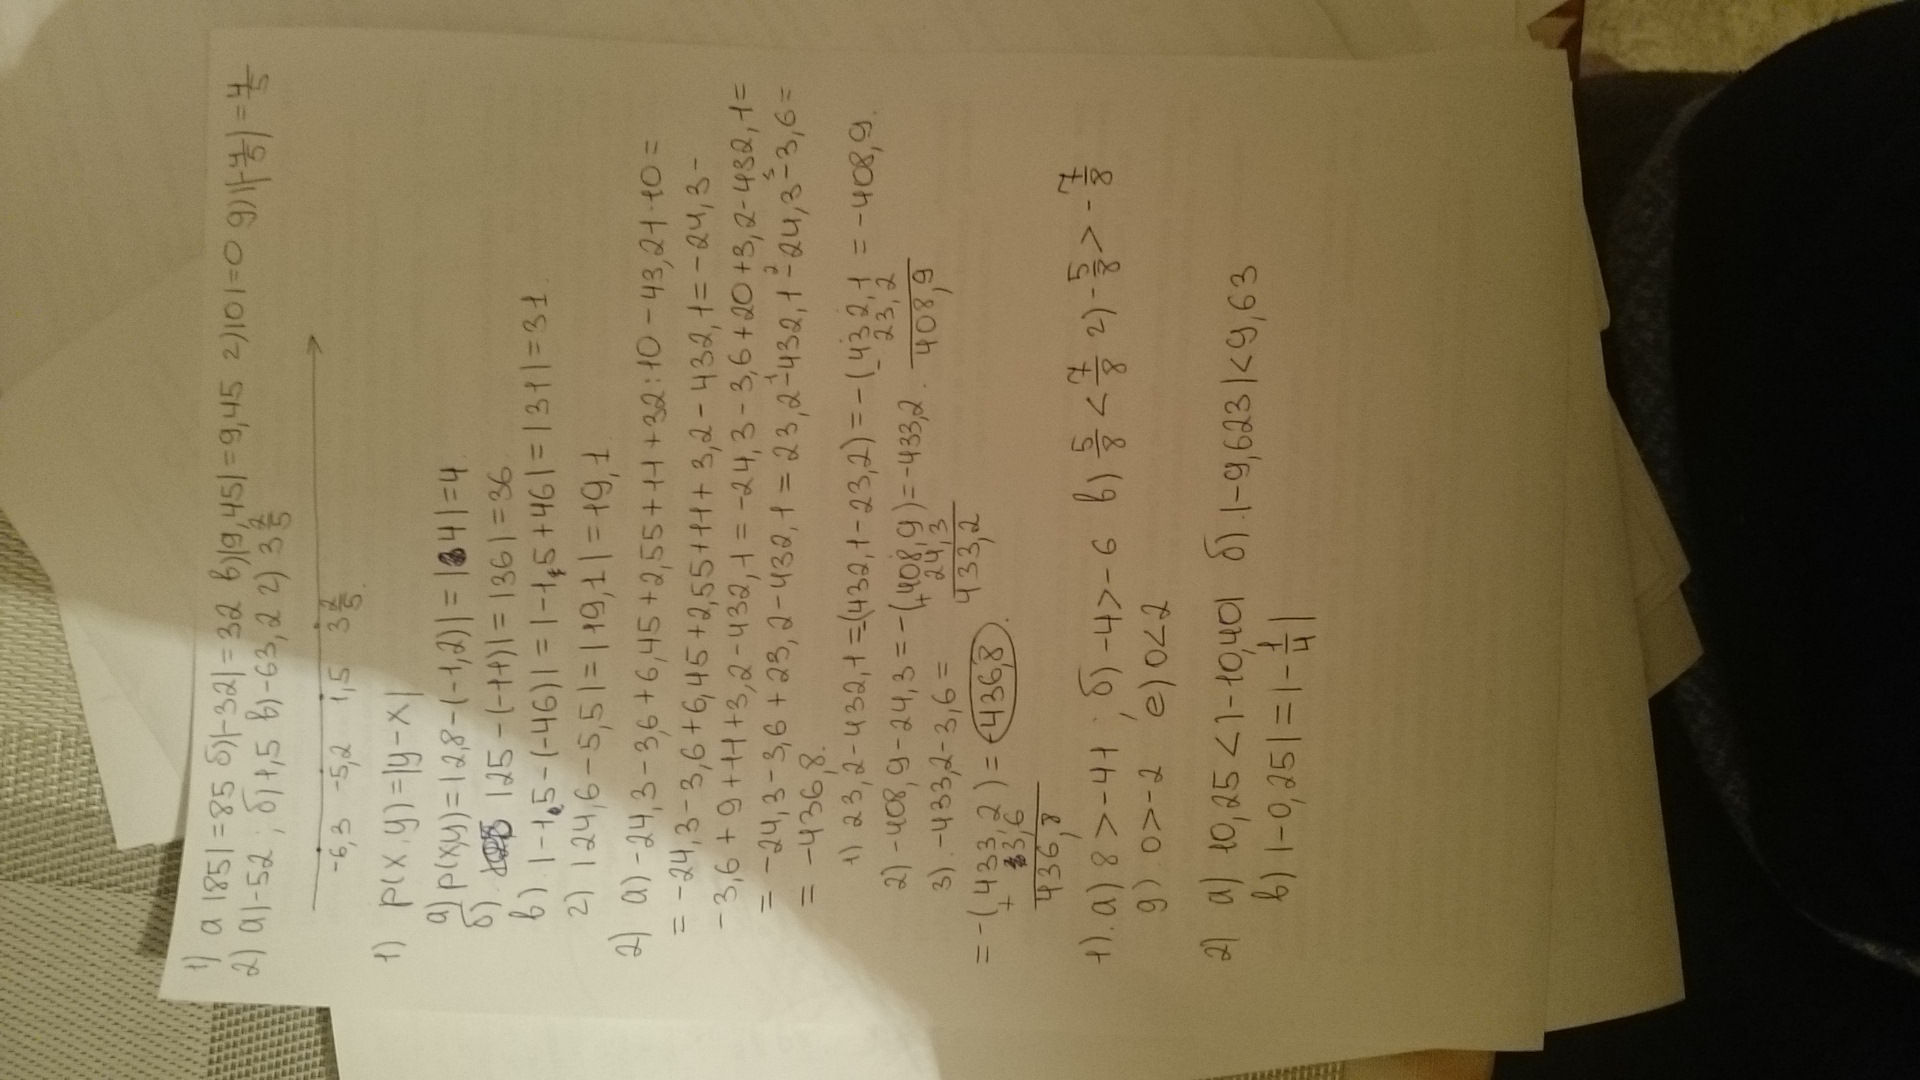 1) а |85|=85 б)|-32|=32 в)|9,45|=9,45 г)|0|=0 д)|-4/5|=4/5
2) а)-52; б)1,5 в)-63,2 г) 3 2/5
-6,3 -5,2 1,5 3 2/5.
1) p(x,y)=|y-x|
а) p(x,y)=|2,8-(-1,2)|=|4|=4
б) |25-(-11)|=|36|=36
в). |-15-(-46)|=|-15+46|=|31|=31.
г) |24,6-5,5|=|19,1|=19,1
2) а) -24,3-3,6+6,45+2,55+11+32:10-43,21·10=
=-24,3-3,6+6,45+2,55+11+3,2-432,1=-24,3-
-3,6+9+11+3,2-432,1=-24,3-3,6+20+3,2-432,1=
=-24,3-3,6+23,2-432,1=23,2-432,1-24,3-3,6=
=-436,8.
1) 23,2-432,1=(432,1-23,2)=-(432,1=-408,9.
23,2
408,9
2) -408,9-24,3=-(408,9)=-433,2.
24,3
433,2
3). -433,2-3,6=
=-(433,2)=-436,8.
+ 3,6
436,8
1). а) 8>-41; б) -4>-6 в) 5/8<7/8 г) -5/8>-7/8
д). 0>-2 е) 0<2
2) а) 10,25<|-10,40| б). |-9,623|<9,63
в) |-0,25|=|-1/4|